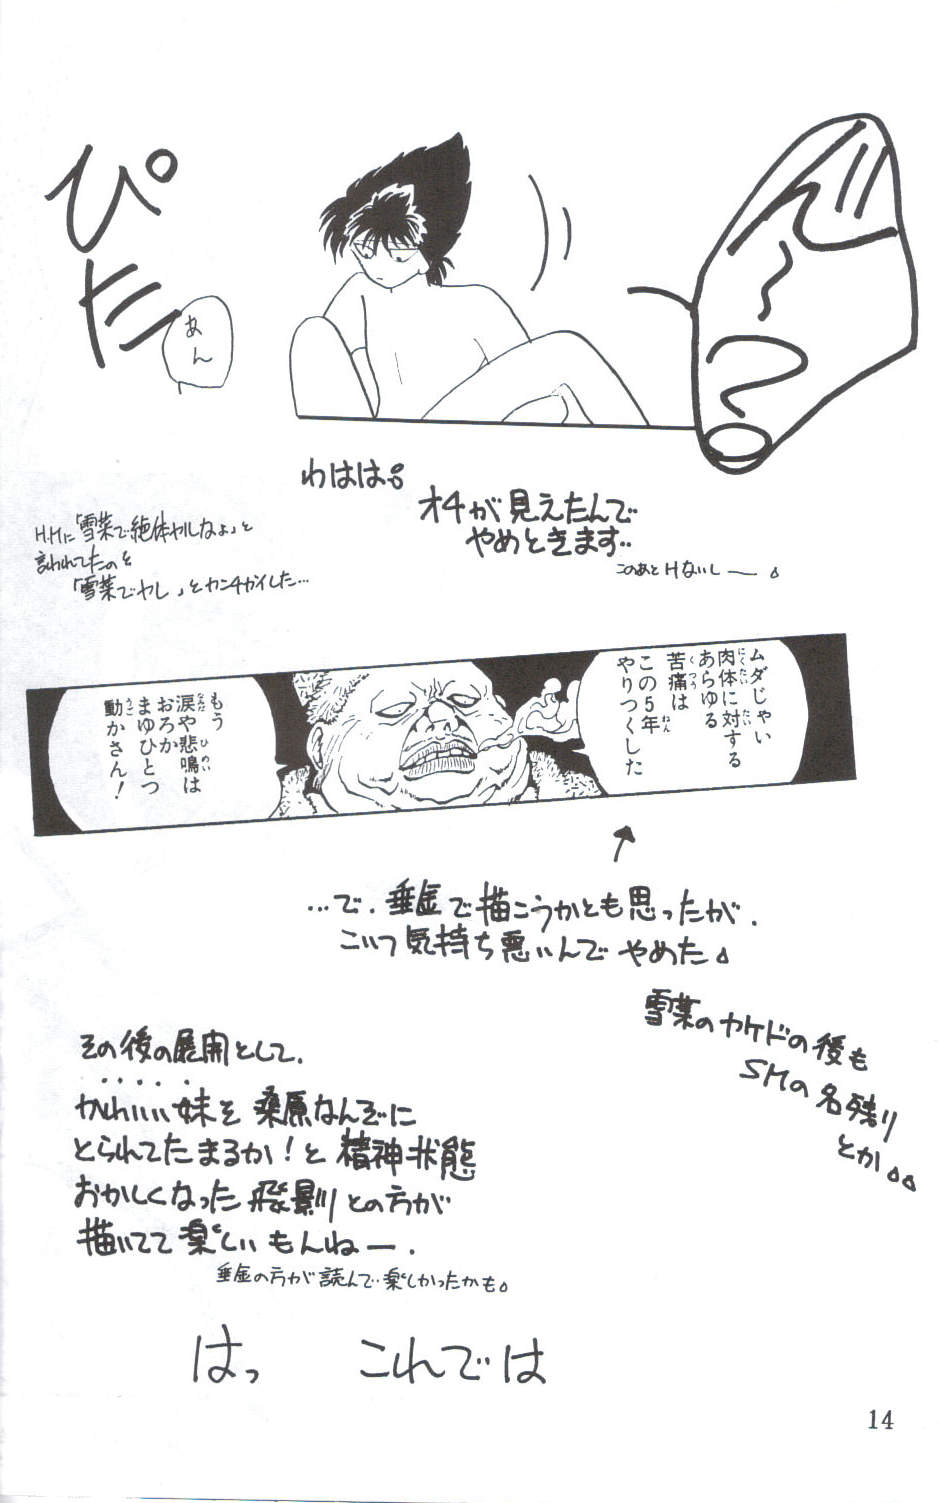 ぴた
あん
わはは。
オチが見えたんで
やめときます‥
このあとHないしー。
H.Hに「雪菜で絶体ヤルなよ」と
言われてたのを
「雪菜でヤレ」とカンチガイした…
ムダじゃい
肉体に対する
あらゆる
苦痛は
この5年
やりつくした
もう
涙や悲鳴は
おろか
まゆひとつ
動かさん！
…で、垂金で描こうかとも思ったが、
こいつ気持ち悪いんでやめた。
雪菜のヤケドの後も
SMの名残り
とか。。
その後の展開として、
かわいい妹を桑原なんぞに
とられてたまるか！と精神状態
おかしくなった飛影との方が
描いてて楽しいもんねー。
垂金の方が読んで楽しかったかも。
はっ　これでは
14